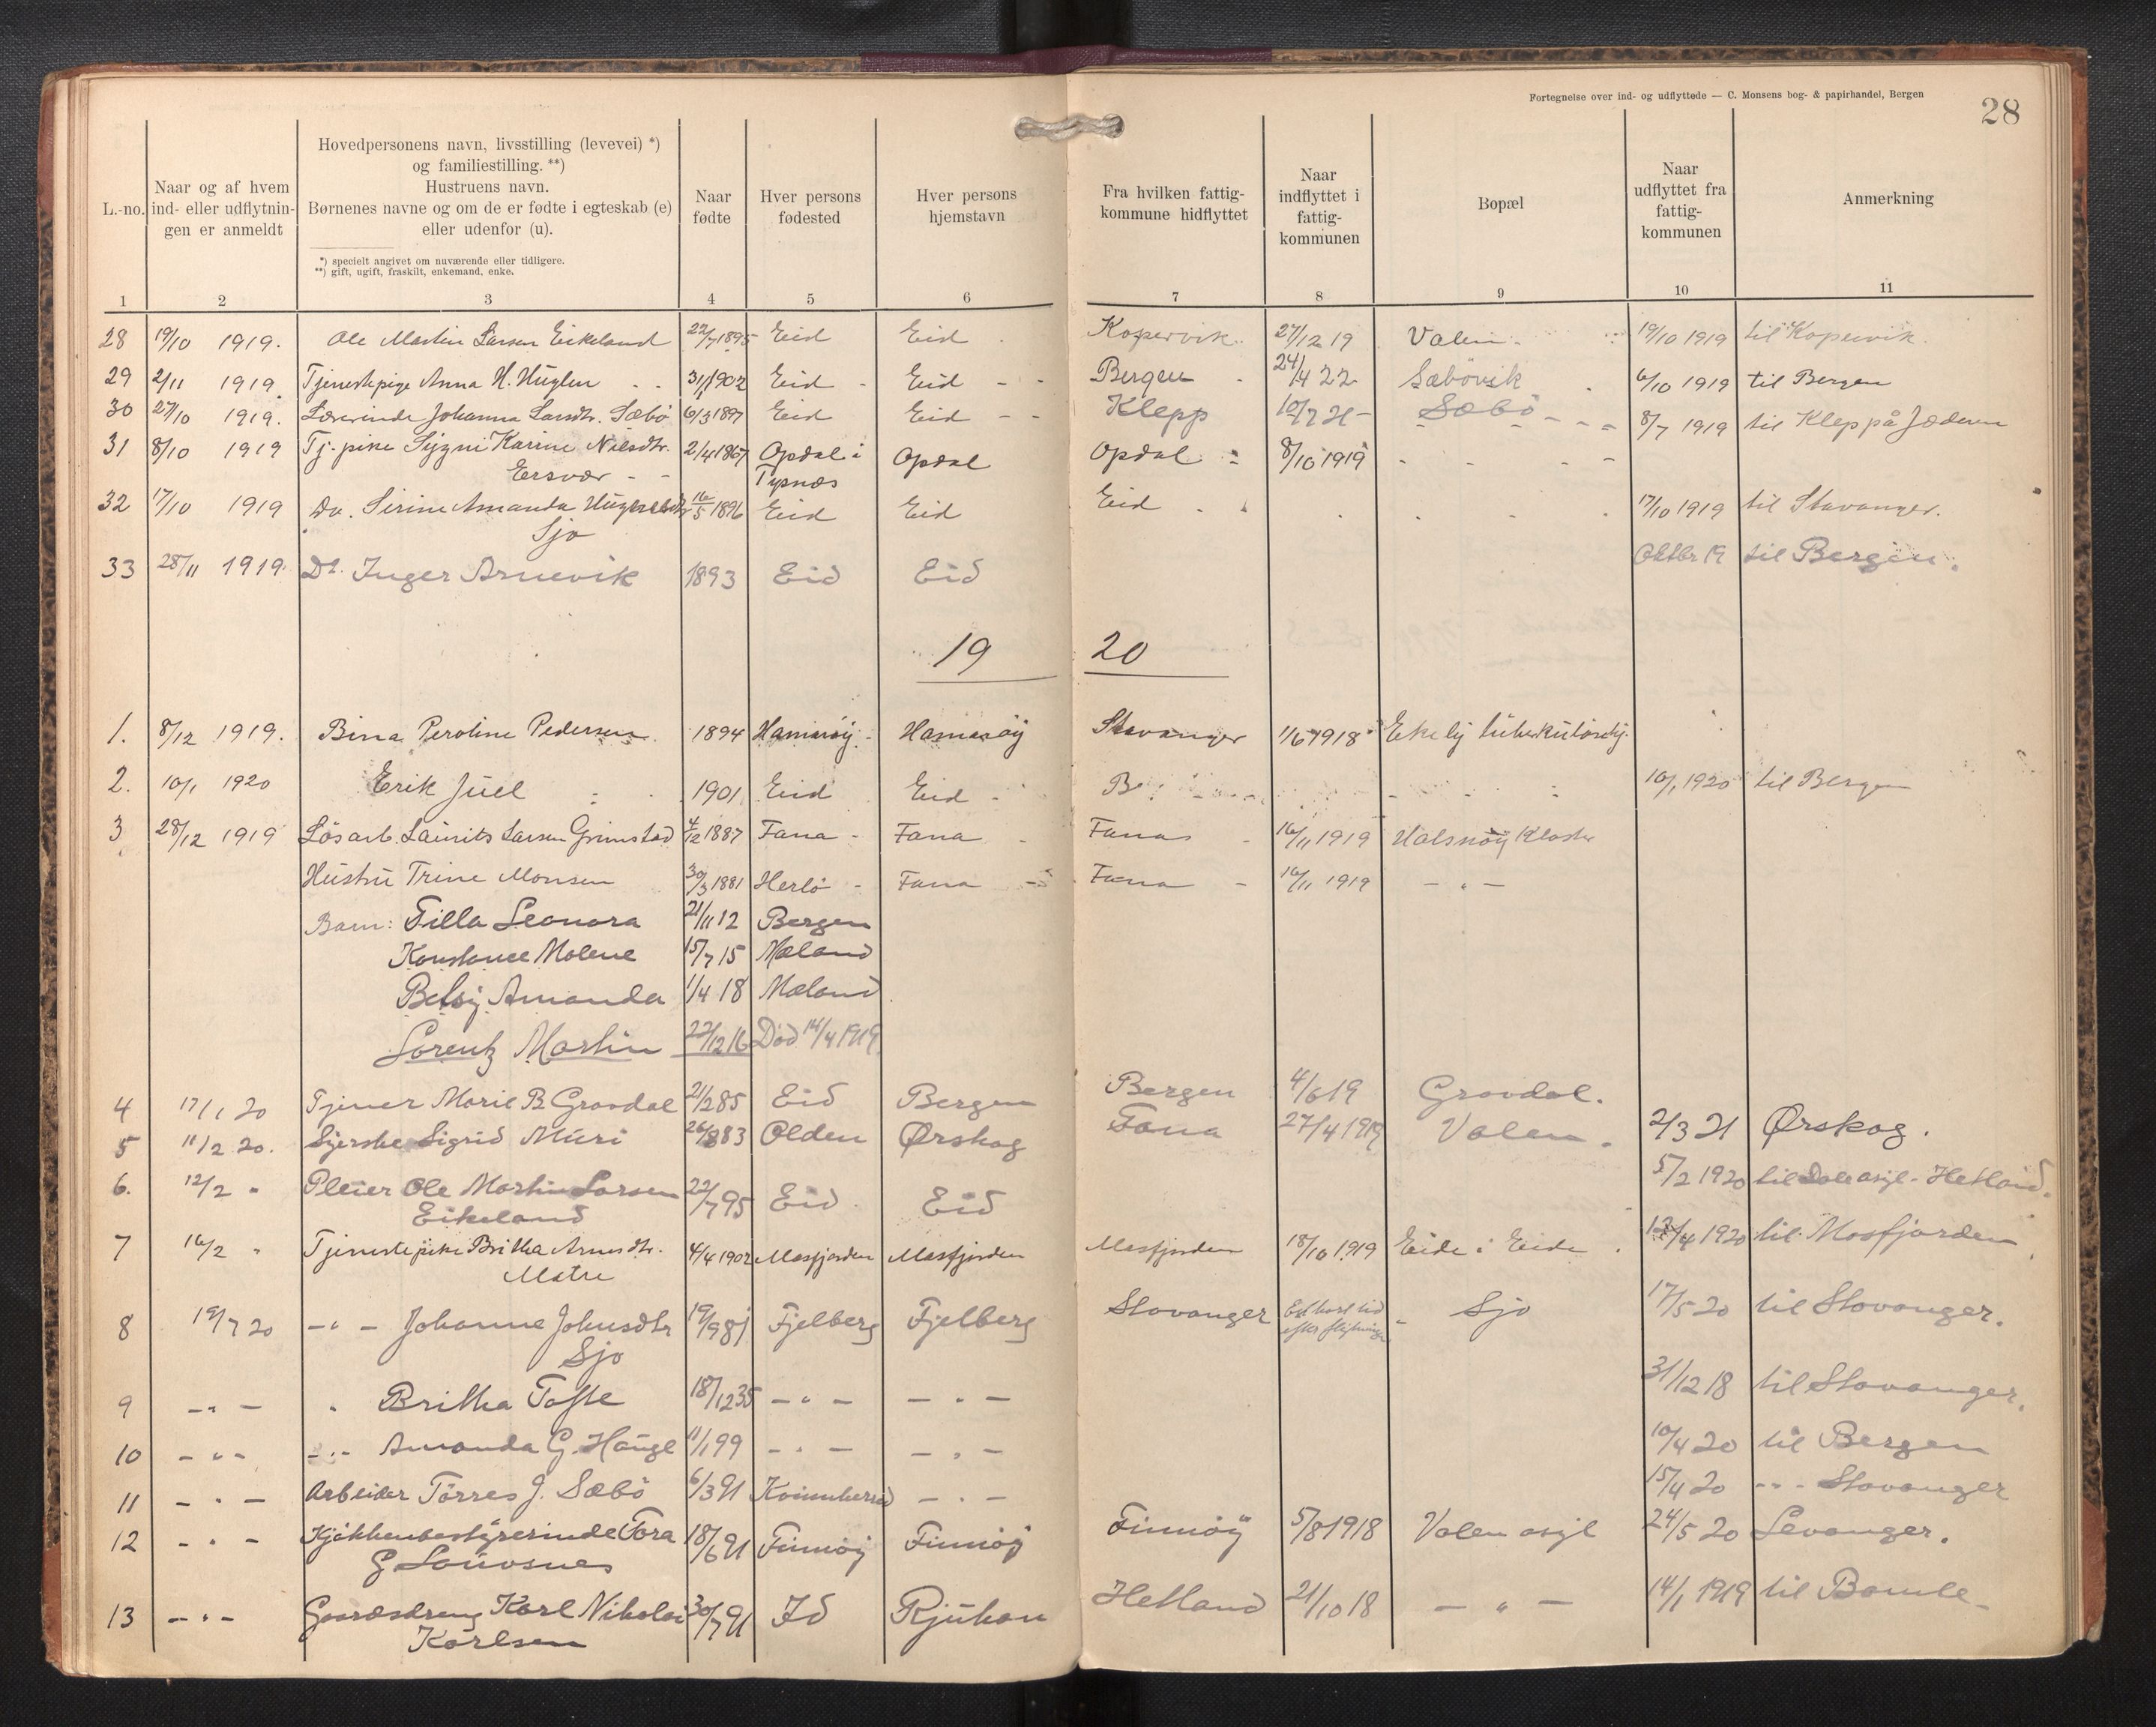 Fortegnelse over ind- og udflyttede — C. Monsens bog- & papirhandel, Bergen
28
L.-no.
Naar og af hvem
ind- eller udflytnin-
gen er anmeldt
Hovedpersonens navn, livsstilling (levevei) *)
og familiestilling. **)
Hustruens navn.
Børnenes navne og om de er fødte i egteskab (e)
eller udenfor (u).
*) specielt angivet om nuværende eller tidligere.
**) gift, ugift, fraskilt, enkemand, enke.
Naar
fødte
Hver persons
fødested
Hver persons
hjemstavn
Fra hvilken fattig-
kommune hidflyttet
Naar
indflyttet i
fattig-
kommunen
Bopæl
Naar
udflyttet fra
fattig-
kommunen
Anmerkning
1 2 3 4 5 6 7 8 9 10 11
28 19/10 1919. Ole Martin Larsen Eikeland 22/7 1895 Eid Eid Kopervik 27/12 19 Valen 19/10 1919 til Kopervik.
29 2/11 1919. Tjenestepige Anna H. Huglen 31/1 1902 Eid Eid Bergen 24/4 22 Sæbövik 6/10 1919 til Bergen
30 27/10 1919. Lærerinde Johanna Larsdtr. Sæbö 6/3 1897 Eid Eid Klepp 10/7 21 Sæbö 8/7 1919 til Klepp på Jæderen
31 8/10 1919 Tj.-pike Sygni Karine Nilsdtr. 2/4 1867 Opdal i Opdal Opdal 8/10 1919
Ersvær Tysnæs
32 17/10 1919 Do. Sirine Amanda 16/5 1896 Eid Eid Eid 17/10 1919 til Stavanger.
Sjo
33 28/11 1919. Do. Inger Arnevik 1893 Eid Eid Oktbr 19 til Bergen.
19 20
1. 8/12 1919. Bina Peroline Pedersen 1894 Hamarøy Hamarøy Stavanger 1/6 1918 Ekely
2. 10/1 1920 Erik Juel 1901 Eid Eid B 10/1 1920 til Bergen
3 28/12 1919 Løsarb. Laurits Larsen Grimstad 4/12 1887 Fana Fana Fana 16/11 1919 Halsnøy Kloster
Hustru Trine Monsen 30/3 1881 Herlö Fana Fana 16/11 1919 — " —
Barn: Tilla Leonora 21/11 12 Bergen
Konstance Molene 15/7 15 Mæland
Betsy Amanda 1/4 18 Mæland
Lorentz Martin 22/12 16 Död 14/4 1919
4 17/1 20 Tjener Marie B. Gravdal 21/2 85 Eid Bergen Bergen 4/6 19 Gravdal.
5 11/2 20. Syerske Sigrid Muri 26/8 83 Olden Ørskog Fana 27/4 1919 Valen. 2/3 21 Ørskog.
6. 12/2 " Pleier Ole Martin Larsen 22/7 95 Eid Eid 5/2 1920 til Dale asyl - Hetland.
Eikeland
7 16/2 " Tjenestepike Britha Arnesdtr. 4/4 1902 Masfjorden Masfjorden Masfjorden 18/10 1919 Eide i Eide 13/4 1920 til Masfjorden.
Matre
8 19/7 20 — " — Johanne Johnsdtr 19/9 81 Fjelberg Fjelberg Stavanger Sjo 17/5 20 til Stavanger.
Sjo
9 — " — " Britha Tofte 18/12 35 — " — — " — 31/12 18 til Stavanger.
10 — " — — " — Amanda G. Hauge 11/1 99 — " — — " — 10/4 20 til Bergen
11 — " — Arbeider Torres J. Sæbö 6/3 91 Kvinnherred — " — 15/4 20 - " - Stavanger
12 — " — Kjøkkenbestyrerinde Tora 18/6 91 Finnöy Finnöy Finnöy 5/8 1918 Valen asyl 24/5 20 Levanger.
G Lauvsnes
13 — " — Gaardsdreng Karl Nikolai 30/7 91 Id Rjukan Hetland 21/10 18 — " — 14/1 1919 til Bamle
Karlsen